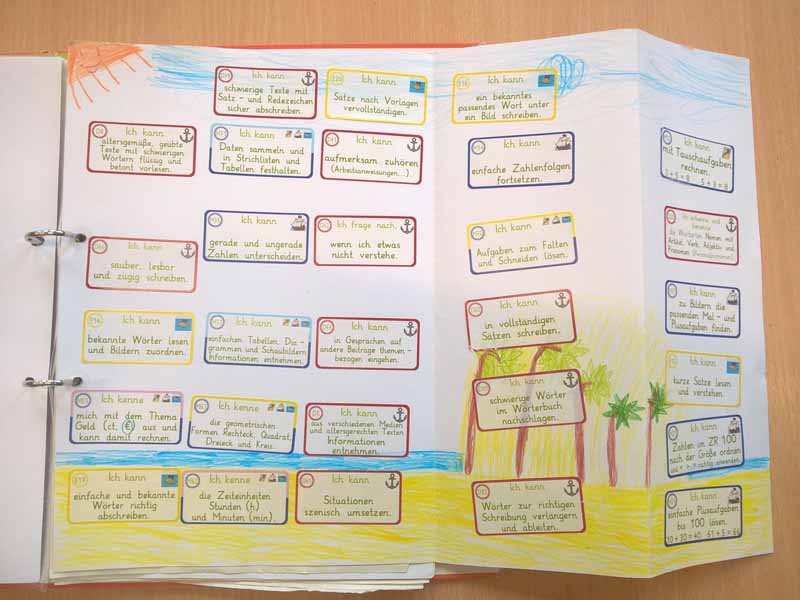 Ich kann
schwierige Texte mit
Satz- und Redezeichen
sicher abschreiben.
Ich kann
Sätze nach Vorlagen
vervollständigen.
Ich kann
ein bekanntes
passendes Wort unter
ein Bild schreiben.
Ich kann
altersgemäße, geübte
Texte mit schwierigen
Wörtern flüssig und
betont vorlesen.
Ich kann
Daten sammeln und
in Strichlisten und
Tabellen festhalten.
Ich kann
aufmerksam zuhören
(Arbeitsanweisungen...).
Ich kann
einfache Zahlenfolgen
fortsetzen.
Ich kann
mit Tauschaufgaben
rechnen.
Ich kann
sauber, lesbar
und zügig schreiben.
Ich kann
gerade und ungerade
Zahlen unterscheiden.
Ich frage nach,
wenn ich etwas
nicht verstehe.
Ich kann
Aufgaben zum Falten
und Schneiden lösen.
Ich erkenne und
benenne
die Wortarten Nomen mit
Artikel, Verb, Adjektiv und
Pronomen (Personalpronomen).
Ich kann
bekannte Wörter lesen
und Bildern zuordnen.
Ich kann
einfachen Tabellen, Dia-
grammen und Schaubildern
Informationen entnehmen.
Ich kann
in Gesprächen auf
andere Beiträge themen-
bezogen eingehen.
Ich kann
in vollständigen
Sätzen schreiben.
Ich kann
zu Bildern die
passenden Mal- und
Plusaufgaben finden.
Ich kenne
mich mit dem Thema
Geld (ct, €) aus und
kann damit rechnen.
Ich kenne
die geometrischen
Formen Rechteck, Quadrat,
Dreieck und Kreis.
Ich kann
aus verschiedenen Medien
und altersgerechten Texten
Informationen
entnehmen.
Ich kann
schwierige Wörter
im Wörterbuch
nachschlagen.
Ich kann
kurze Sätze lesen
und verstehen.
Ich kann
einfache und bekannte
Wörter richtig
abschreiben.
Ich kenne
die Zeiteinheiten
Stunden (h)
und Minuten (min).
Ich kann
Situationen
szenisch umsetzen.
Ich kann
Wörter zur richtigen
Schreibung verlängern
und ableiten.
Ich kann
Zahlen im ZR 100
nach der Größe ordnen
Ich kann
einfache Plusaufgaben
bis 100 lösen.
10 + 30 = 40 61 + 5 = 66